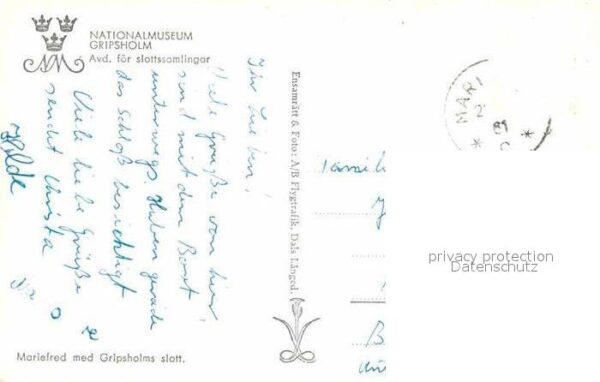 NATIONALMUSEUM
GRIPSHOLM
Avd. för slottssamlingar
Ihr Lieben!
Viele Grüße von hier,
sind mit dem Boot
unterwegs. Haben gerade
das Schloß besichtigt
Viele liebe Grüße
sendet Christa
Hilde
Ensamrätt & Foto: A/B Flygtrafik, Dals Långed.
Famili
MARI
privacy protection
Datenschutz
B
Mariefred med Gripsholms slott.